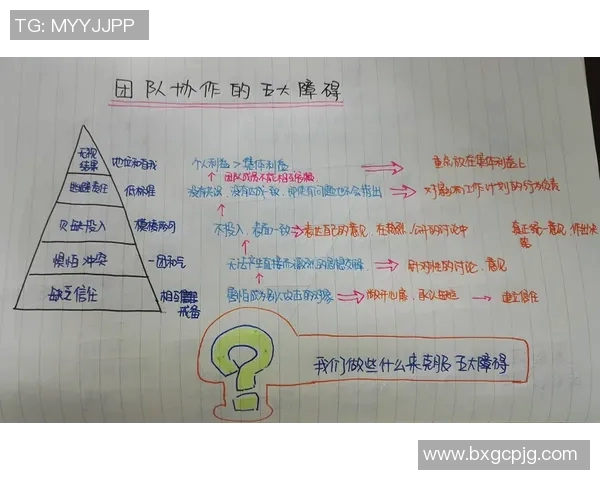 TG: MYYJJPP
团队协作的五大障碍
无视结果 地位和自我 个人利益 > 集体利益 重点放在集体利益上
团队成员不能相互
逃避责任 低标准 没有达成一致, 即使有问题也不会指出 对影响工作计划的行为负责
欠缺投入 模棱两可 不投入、表面一致 表达自己的意见, 在 公开的讨论中 真正统一意见, 作出决定
惧怕冲突 一团和气 无法产生直接而激烈的思想交锋 针对性的讨论、意见
缺乏信任 相互戒备 害怕成为别人攻击的对象 敞开心扉, 承认缺点 建立信任
我们做些什么来克服五大障碍
www.bxgcpjg.com